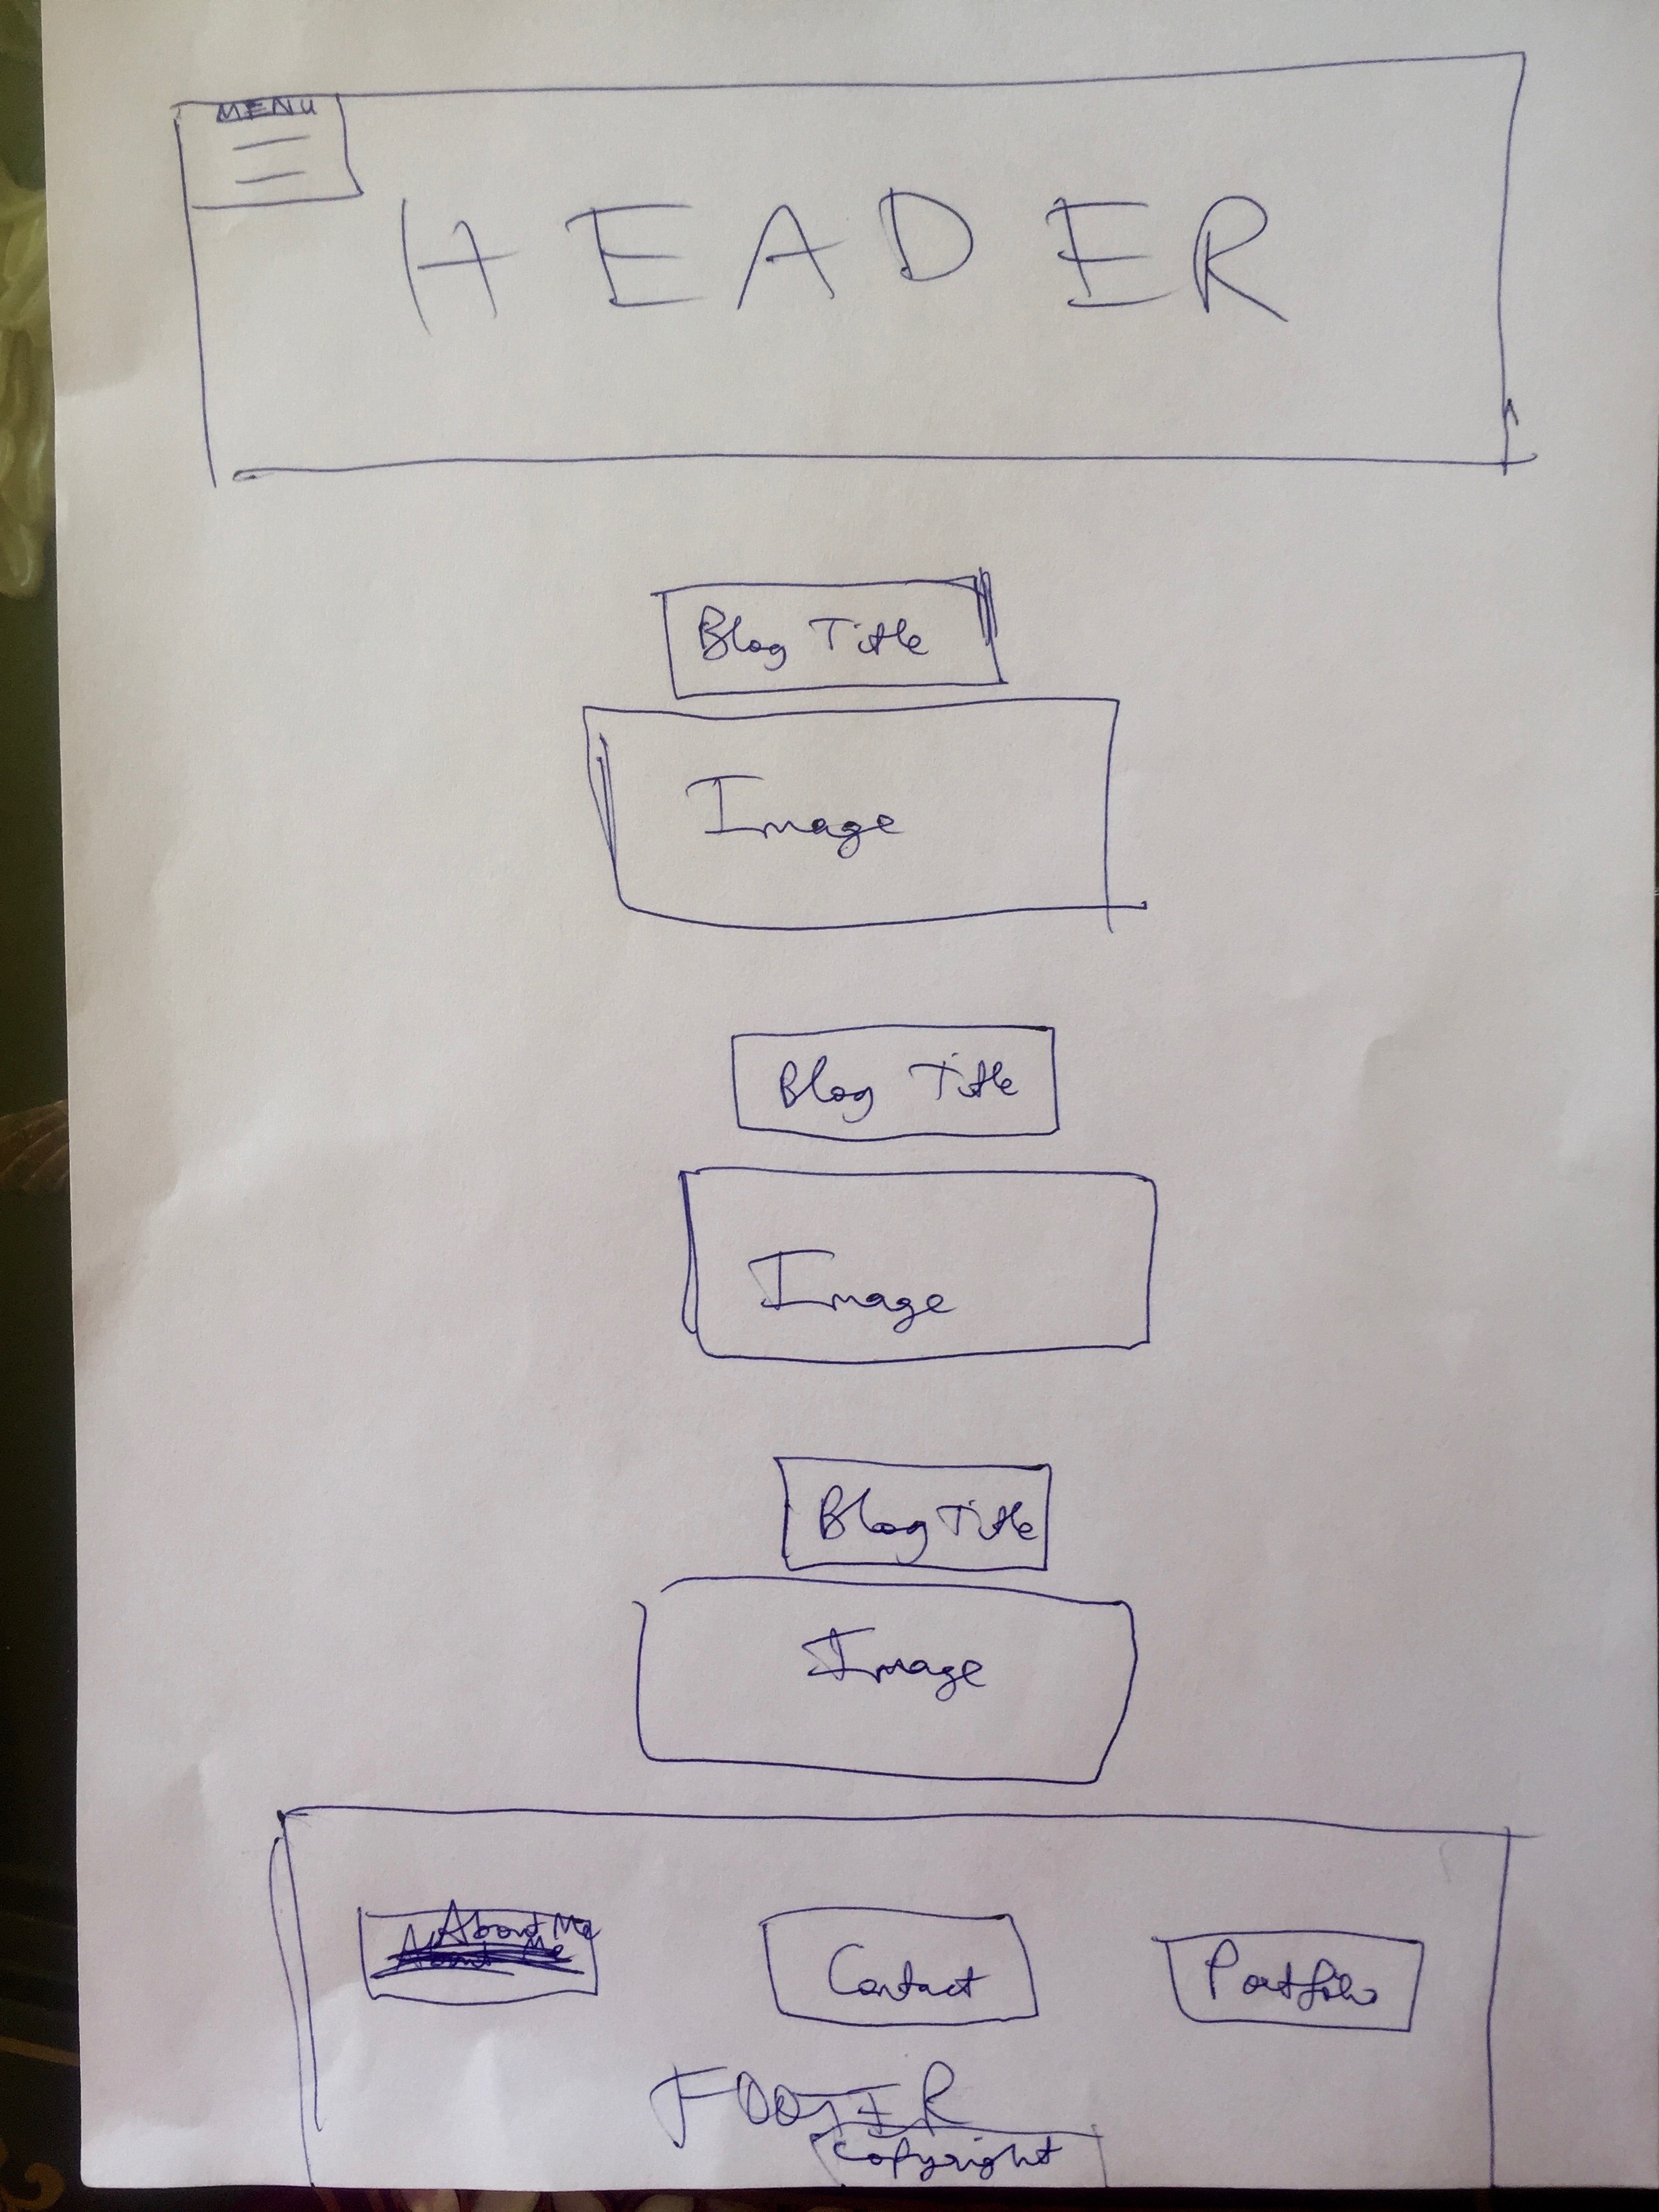 MENU
HEADER
Blog Title
Image
Blog Title
Image
Blog Title
Image
About Me
About Me
Contact
Portfolio
FOOTER
Copyright